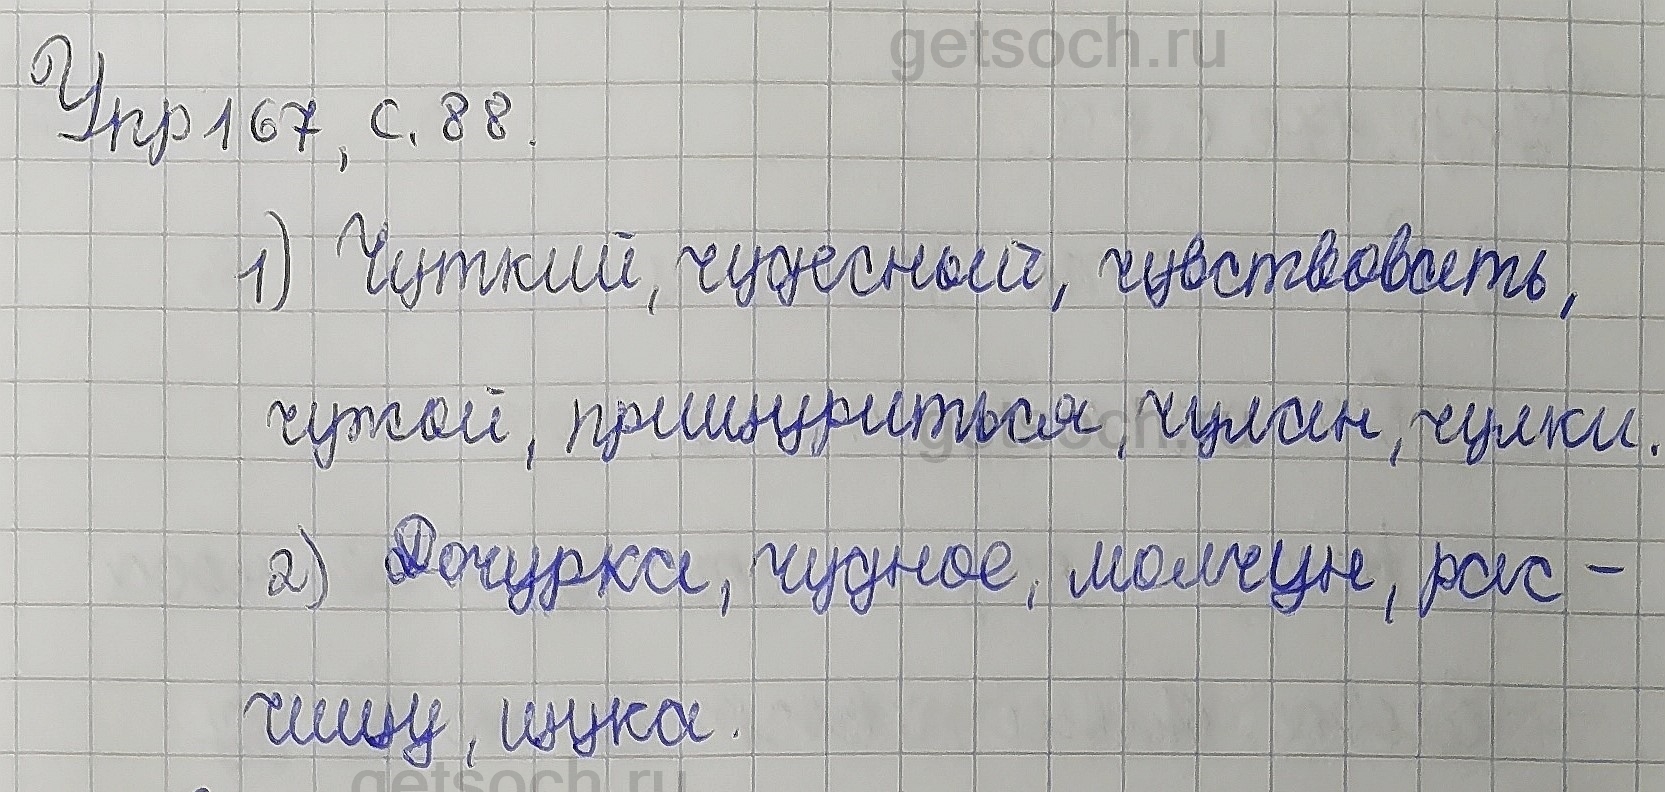 getsoch.ru
Упр 167, с. 88.
1) Чуткий, чудесный, чувствовать,
чужой, прищуриться, чулан, чулки.
getsoch.ru
2) Дочурка, чудное, молчун, рас-
чищу, щука.
getsoch.ru